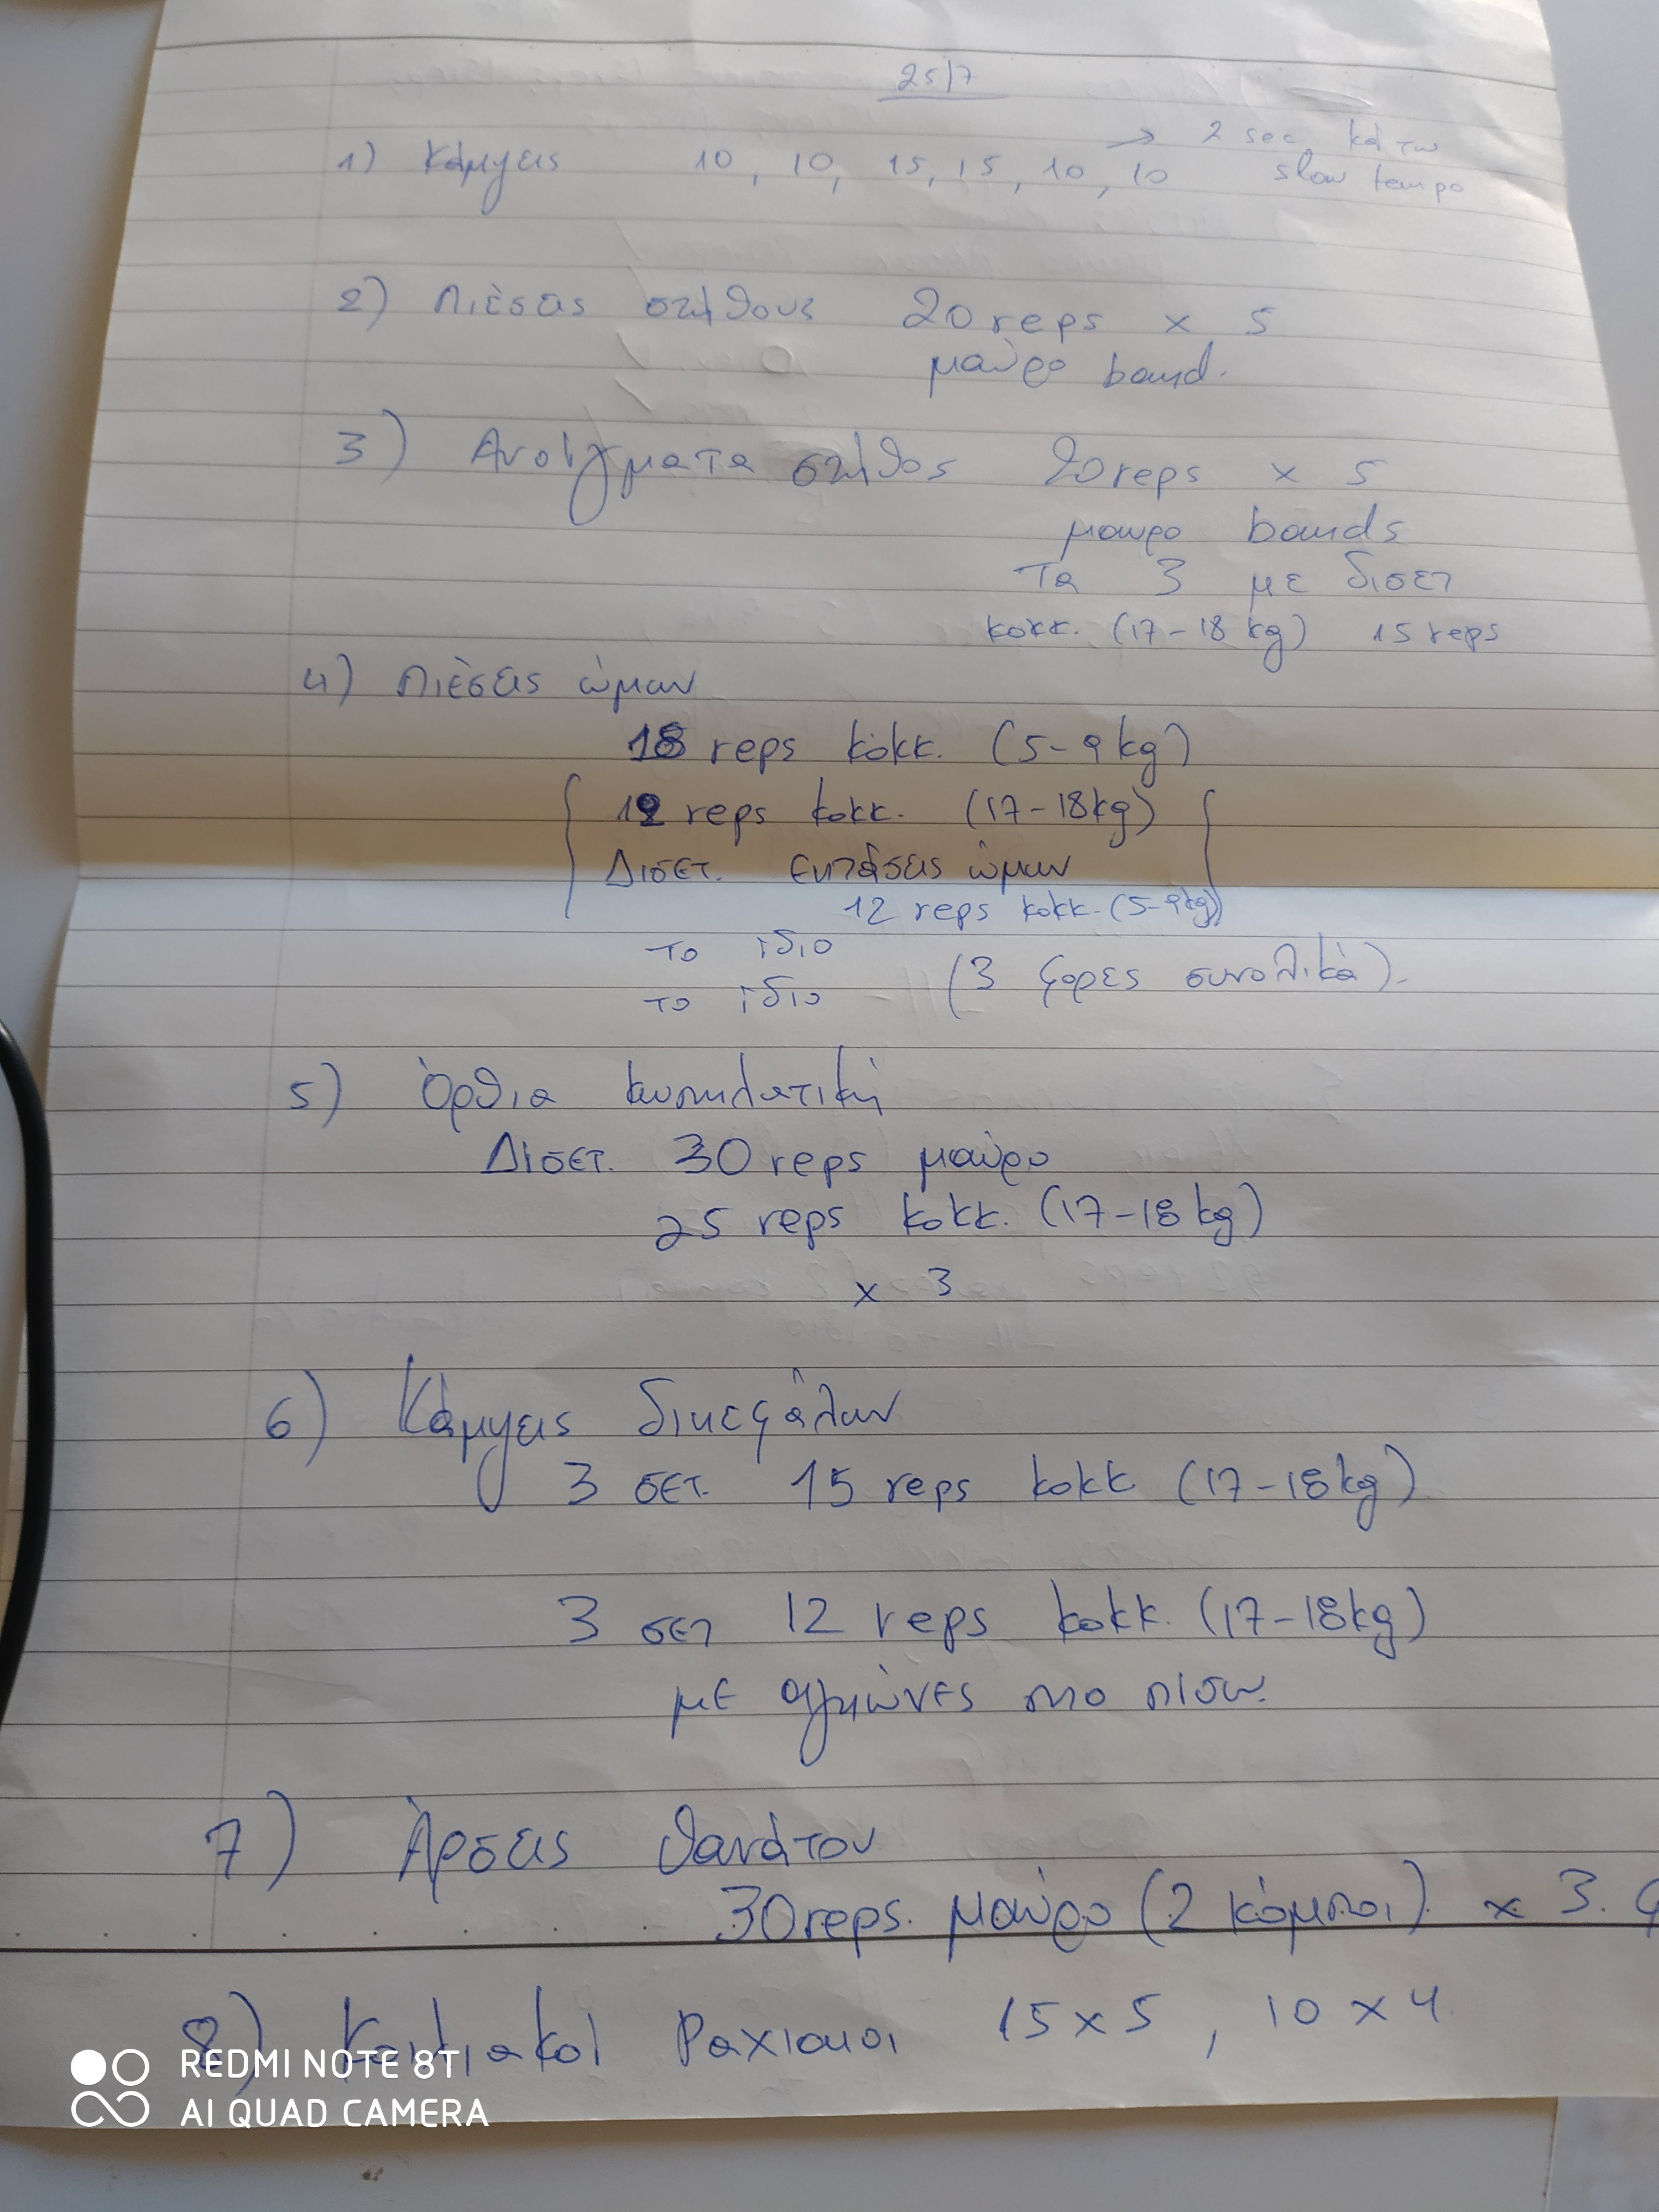 25/7
1) Κάμψεις 10, 10, 15, 15, 10, 10 → 2 sec. κάτω
slow tempo
2) Πιέσεις στήθους 20 reps x 5
μαύρο band.
3) Ανοίγματα στήθος 20 reps x 5
μαυρο bands
Τα 3 με δισετ
κοκκ. (17-18 kg) 15 reps
4) Πιέσεις ώμων
18 reps κόκκ. (5-9 kg)
12 reps κοκκ. (17-18kg)
Δισετ. εκτάσεις ώμων
12 reps κοκκ. (5-9kg)
το ίδιο
το ίδιο (3 φορες συνολικά).
5) Όρθια κωπηλατική
Δίσετ. 30 reps μαύρο
25 reps κοκκ. (17-18 kg)
x 3
6) Κάμψεις δικεφάλων
3 σετ. 15 reps κοκκ (17-18kg)
3 σετ 12 reps κοκκ. (17-18kg)
με αγκώνες πιο πίσω.
7) Άρσεις θανάτου
30 reps. μαύρο (2 κόμποι) x 3.
8) Κοιλιακοί Ραχιαιοι 15 x 5, 10 x 4
REDMI NOTE 8T
AI QUAD CAMERA